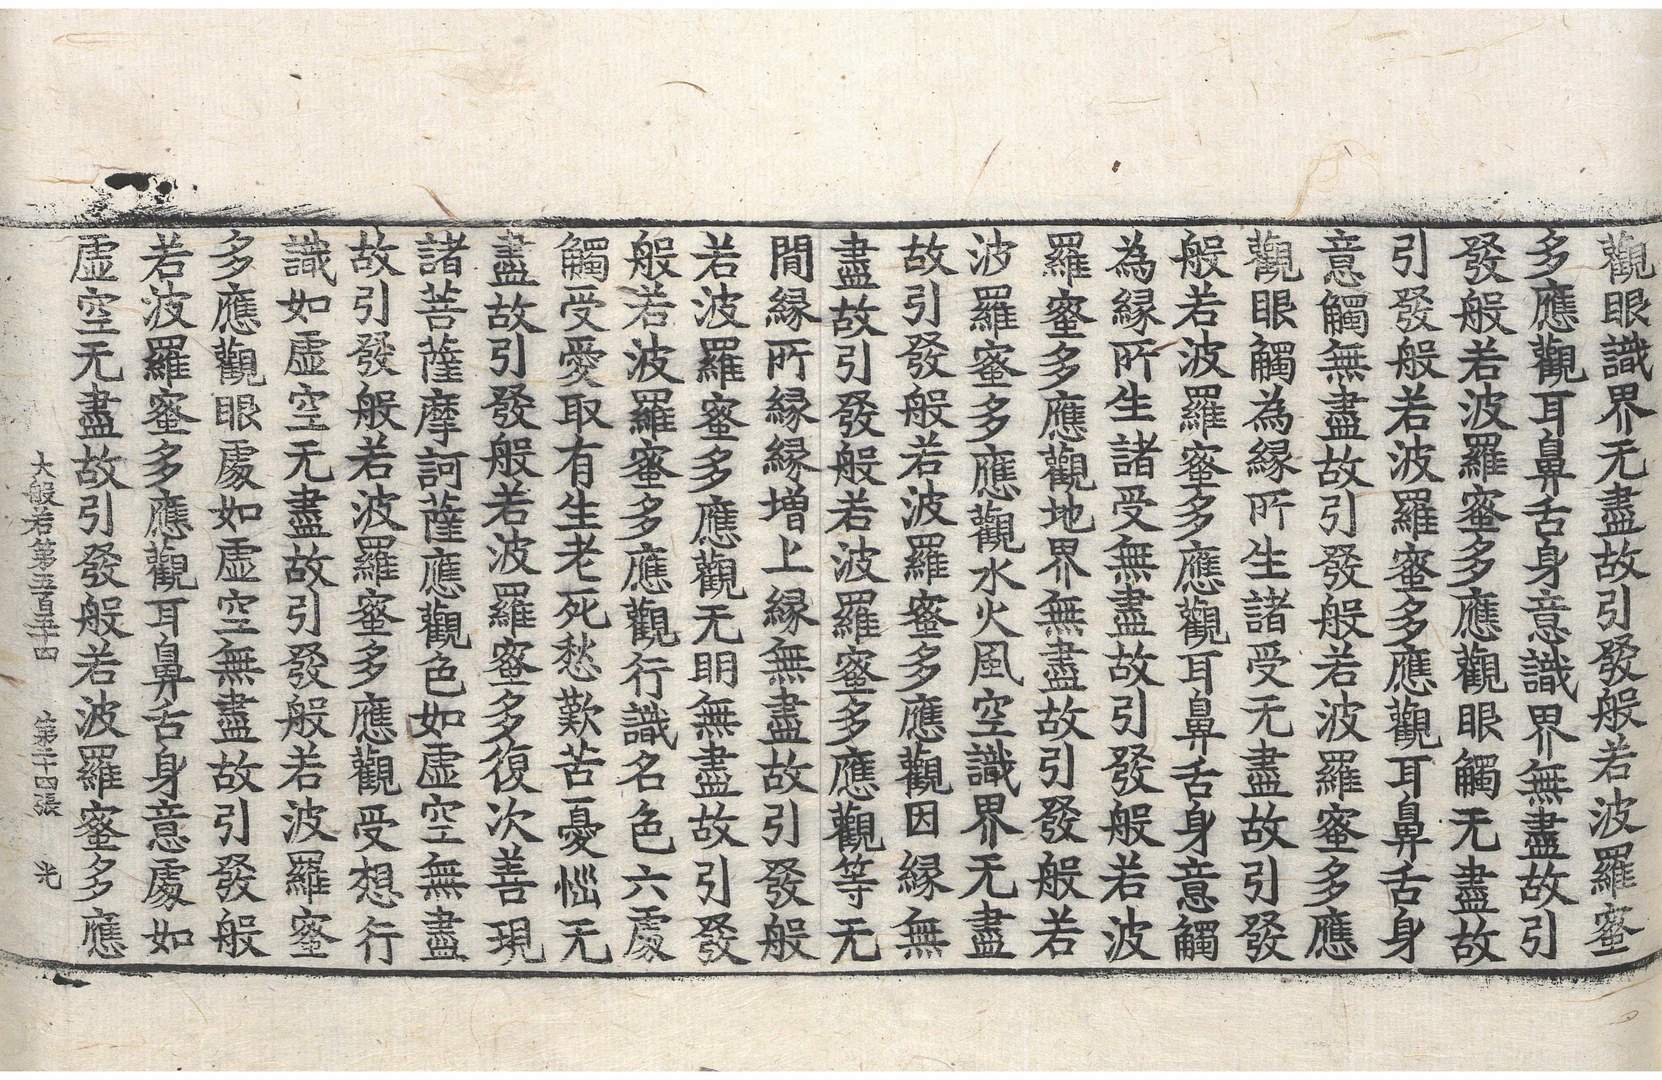 觀眼識界无盡故引發般若波羅蜜
多應觀耳鼻舌身意識界無盡故引
發般若波羅蜜多應觀眼觸无盡故
引發般若波羅蜜多應觀耳鼻舌身
意觸無盡故引發般若波羅蜜多應
觀眼觸為縁所生諸受无盡故引發
般若波羅蜜多應觀耳鼻舌身意觸
為縁所生諸受無盡故引發般若波
羅蜜多應觀地界無盡故引發般若
波羅蜜多應觀水火風空識界无盡
故引發般若波羅蜜多應觀因縁無
盡故引發般若波羅蜜多應觀等无
間縁所縁縁增上縁無盡故引發般
若波羅蜜多應觀无明無盡故引發
般若波羅蜜多應觀行識名色六處
觸受愛取有生老死愁歎苦憂惱无
盡故引發般若波羅蜜多復次善現
諸菩薩摩訶薩應觀色如虛空無盡
故引發般若波羅蜜多應觀受想行
識如虛空无盡故引發般若波羅蜜
多應觀眼處如虛空無盡故引發般
若波羅蜜多應觀耳鼻舌身意處如
虛空无盡故引發般若波羅蜜多應
大般若第五百五十四 第二十四張 光